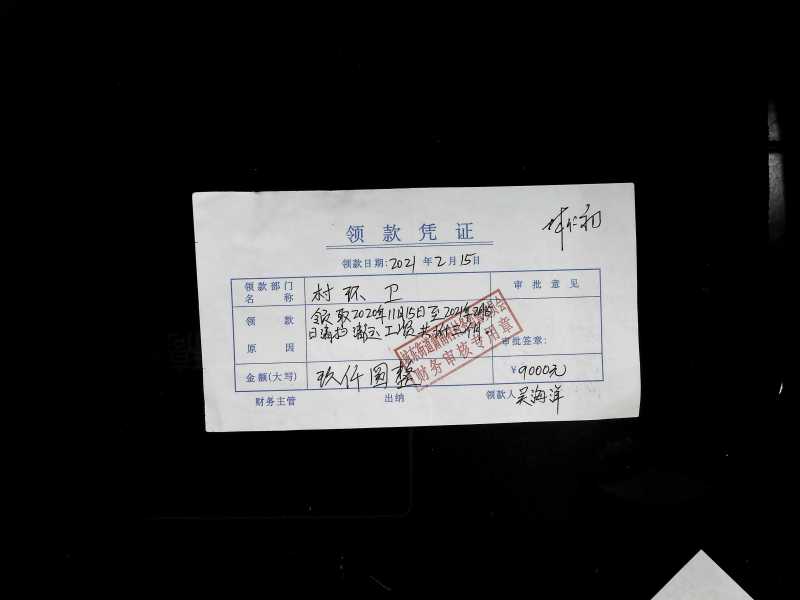 领款凭证
领款日期:2021年2月15日
领款部门名称 村环卫 审批意见
领款原因 领取2020年11月15日至2021年2月15
日清扫 工资共计三个月。
审批签章:
财务审核专用章
金额(大写) 玖仟圆整 ¥9000元
财务主管 出纳 领款人 吴海洋